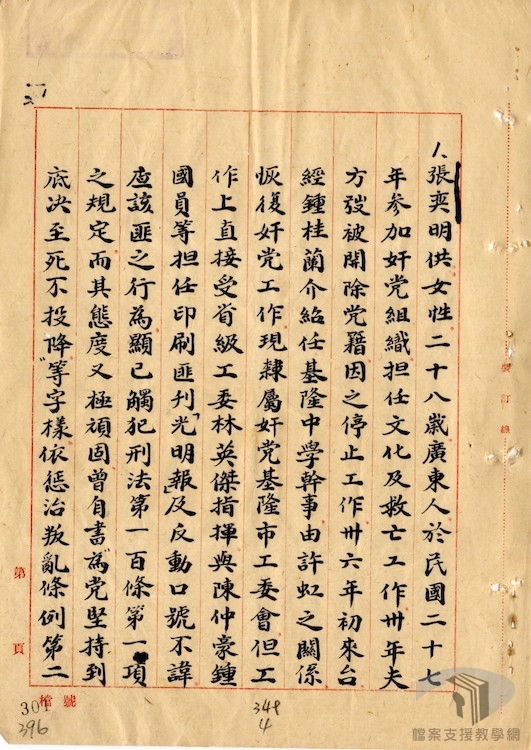 1、張奕明供女性二十八歲廣東人於民國二十七
年參加奸党組織担任文化及救亡工作卅年夫
方弢被開除党籍因之停止工作卅六年初來台
經鍾桂蘭介紹任基隆中學幹事由許虹之關係
恢復奸党工作現隸屬奸党基隆市工委會但工
作上直接受省級工委林英傑指揮與陳仲豪鍾
國員等担任印刷匪刊「光明報」及反動口號不諱
查該匪之行為顯已觸犯刑法第一百條第一項
之規定而其態度又極頑固曾自書「為党堅持到
底決至死不投降」等字樣依懲治叛亂條例第二
裝訂線
第 頁
檔號
301
396
348
4
檔案支援教學網